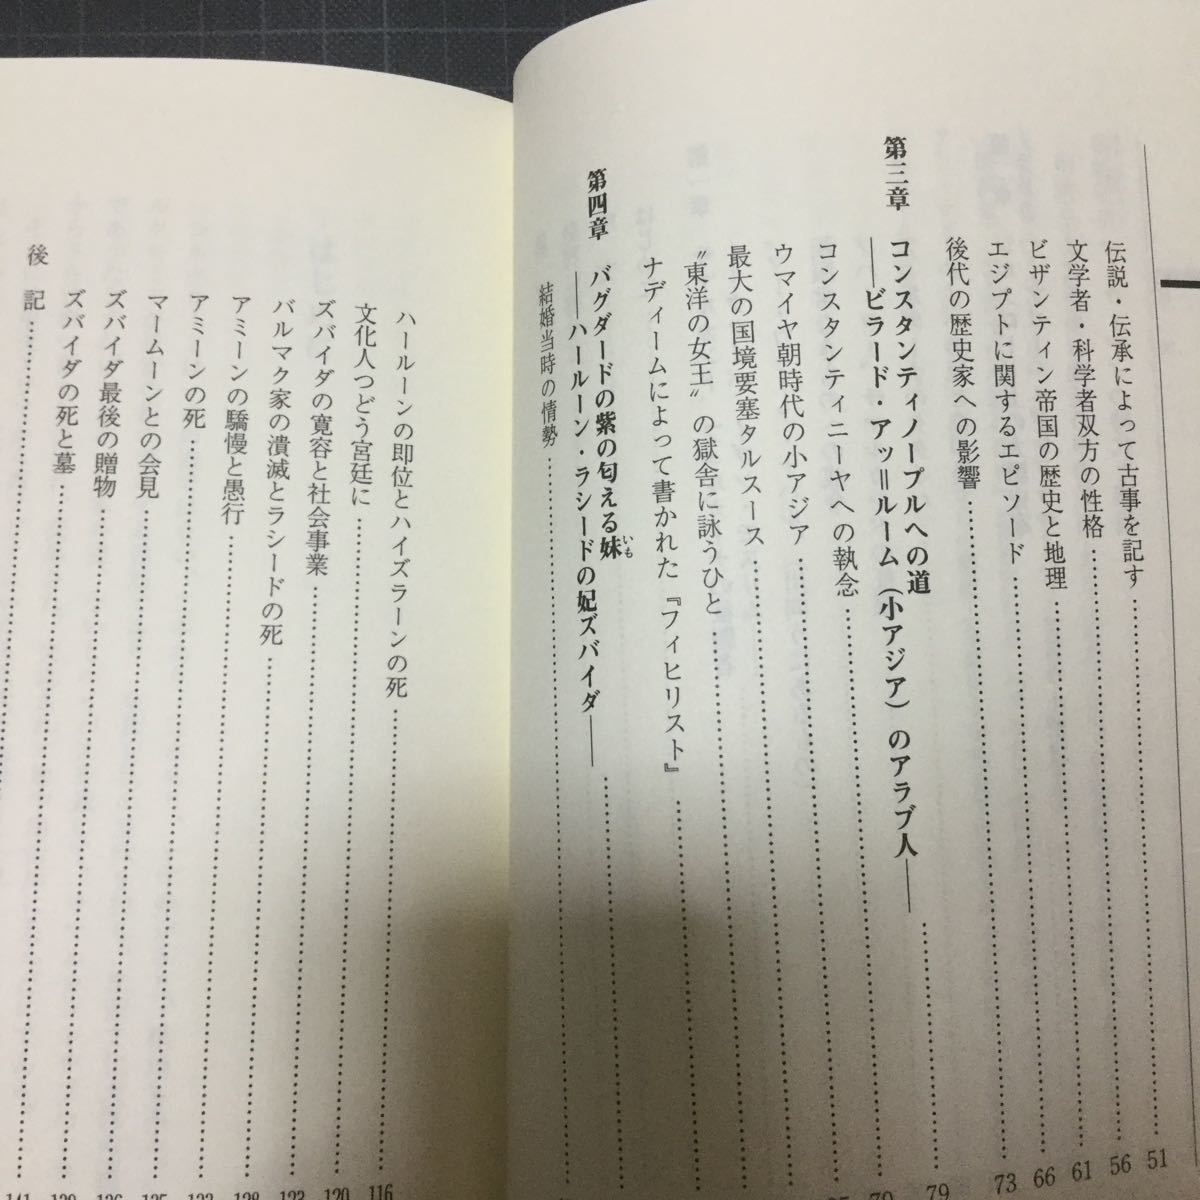 伝説・伝承によって古事を記す……51
文学者・科学者双方の性格……56
ビザンティン帝国の歴史と地理……61
エジプトに関するエピソード……66
後代の歴史家への影響……73
第三章 コンスタンティノープルへの道
――ビラード・アッ＝ルーム（小アジア）のアラブ人――……79
コンスタンティニーヤへの執念……79
ウマイヤ朝時代の小アジア……
最大の国境要塞タルスース……
〝東洋の女王〟の獄舎に詠うひと……
ナディームによって書かれた『フィヒリスト』……
第四章 バグダードの紫の匂える妹いも
――ハールーン・ラシードの妃ズバイダ――……
結婚当時の情勢……
ハールーンの即位とハイズラーンの死……116
文化人つどう宮廷に……120
ズバイダの寛容と社会事業……123
バルマク家の潰滅とラシードの死……128
アミーンの驕慢と愚行……
アミーンの死……
マームーンとの会見……
ズバイダ最後の贈物……
ズバイダの死と墓……
後記……141